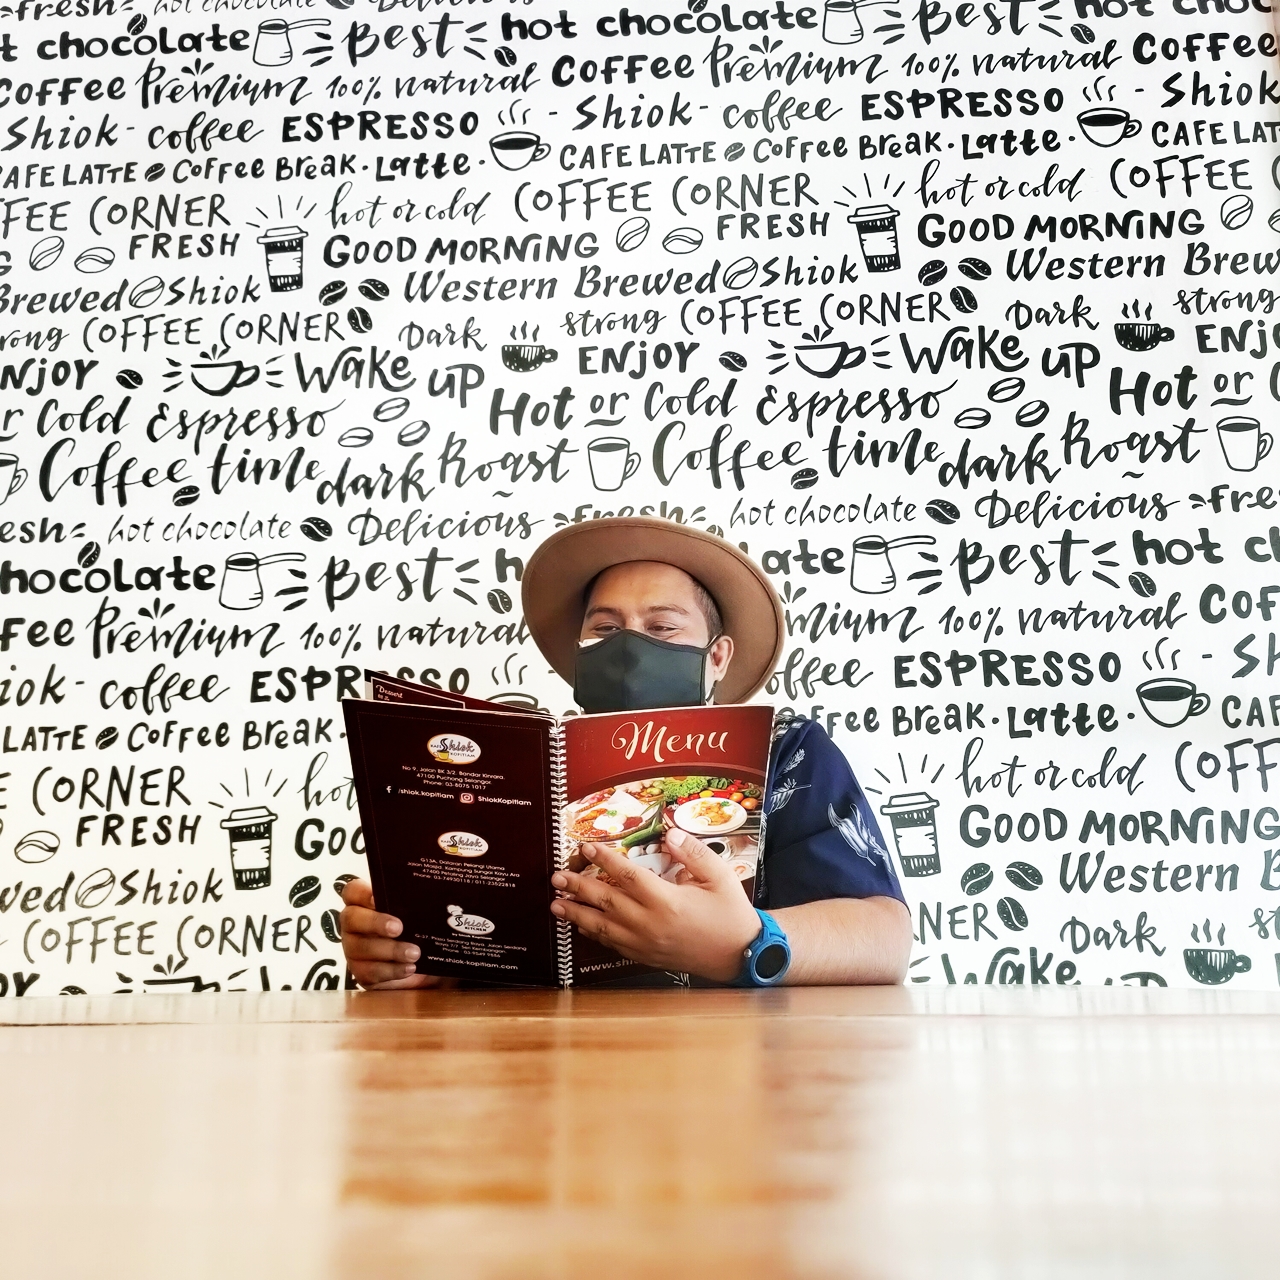 fresh hot chocolate Delicious
t chocolate Best hot chocolate Best hot choc
Coffee Premium 100% natural Coffee Premium 100% natural Coffee
Shiok - coffee ESPRESSO - Shiok - coffee ESPRESSO - Shiok
AFE LATTE Coffee Break · Latte · CAFE LATTE Coffee Break · Latte · CAFE LAT
FEE CORNER hot or cold COFFEE CORNER hot or cold COFFEE
FRESH GOOD MORNING FRESH GOOD MORNING
Brewed Shiok Western Brewed Shiok Western Brew
rong COFFEE CORNER Dark strong COFFEE CORNER Dark strong
NJOY Wake up ENJOY Wake up ENJO
or Cold Espresso Hot or Cold Espresso Hot or C
Coffee time dark Roast Coffee time dark Roast
esh hot chocolate Delicious fresh hot chocolate Delicious fre
hocolate Best h ate Best hot ch
fee Premium 100% natural mium 100% natural Cof
iok - coffee ESPRESSO offee ESPRESSO - Sh
LATTE Coffee Break · ffee Break · Latte · CAF
E CORNER hot hot or cold COFF
FRESH GOO GOOD MORNING
wed Shiok Western B
COFFEE CORNER NER Dark
OY Wake Wake up
Dessert
Shiok
KOPITIAM
No 9, Jalan BK 3/2, Bandar Kinrara,
47100 Puchong Selangor
Phone: 03-8075 1017
f /shiok.kopitiam ShiokKopitiam
Shiok
KOPITIAM
G13A, Dataran Pelangi Utama,
Jalan Masjid, Kampung Sungai Kayu Ara
47400 Petaling Jaya Selangor
Phone: 03-74930118 / 011-23522818
Shiok
KITCHEN
by Shiok Kopitiam
G-37, Plaza Serdang Raya, Jalan Serdang
Raya 7/7, Seri Kembangan,
Phone: 03-9549 9886
www.shiok-kopitiam.com
Menu
www.shi